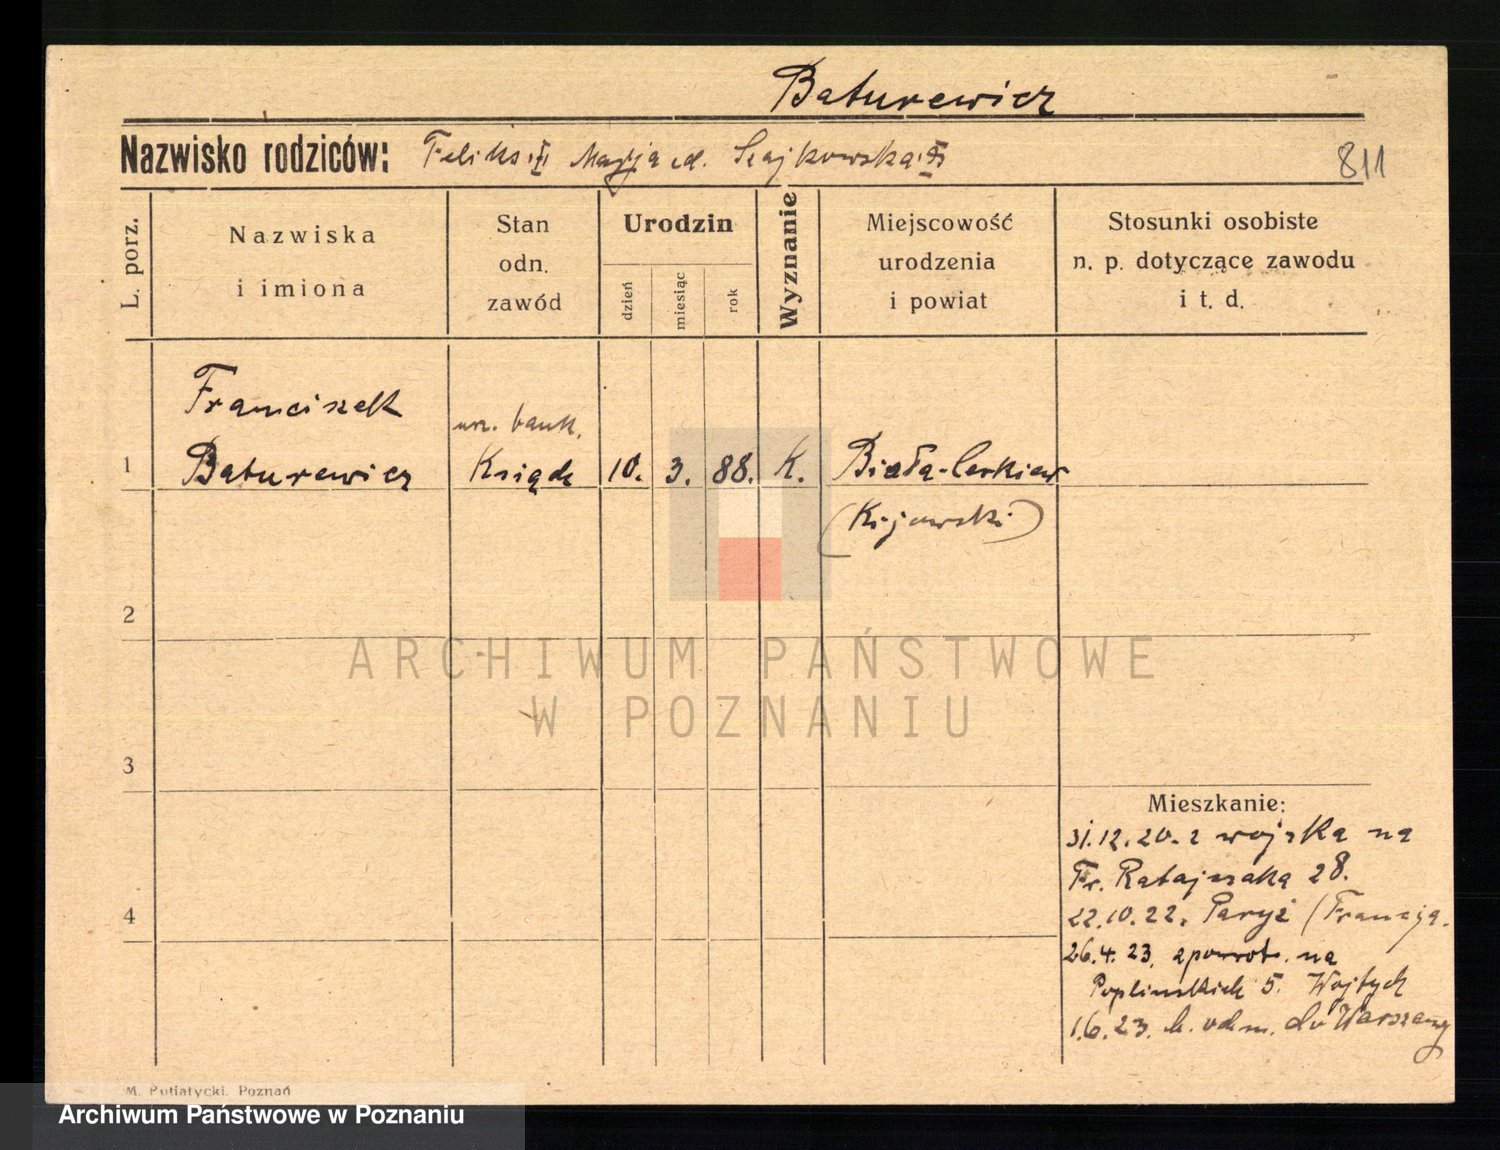 Baturewicz
Nazwisko rodziców: Feliks Marja Szajkowska
811
L. porz.
Nazwiska
i imiona
Stan
odn.
zawód
Urodzin
dzień
miesiąc
rok
Wyznanie
Miejscowość
urodzenia
i powiat
Stosunki osobiste
n. p. dotyczące zawodu
i t. d.
Franciszek
urz. bank.
1 Baturewicz Ksiądz 10. 3. 88. K. Biała-Cerkiew
(Kijowski)
2
ARCHIWUM PAŃSTWOWE
W POZNANIU
3
Mieszkanie:
31.12.20. z wojska na
Fr. Ratajczaka 28.
22.10.22. Paryż (Francja.
4
26.4.23. zpowrot. na
Poplinskich 5. Wojtych
1.6.23. do Warszawy
M. Putiatycki. Poznań
Archiwum Państwowe w Poznaniu